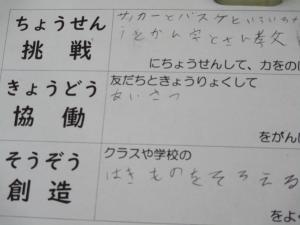 ちょうせん
挑戦
サッカーとバスケといろいろ
うとかん字とさん考文
にちょうせんして、力をの
きょうどう
協働
友だちときょうりょくして
あいさつ
をがん
そうぞう
創造
クラスや学校の
はきものをそろえる
をよ